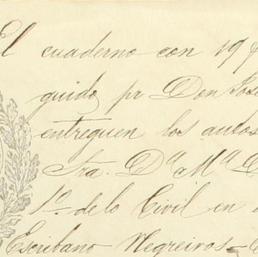 El cuaderno con 19 f
guido pr Don José
entreguen los autos
Sra. Dª Mª
1º de lo Civil en
Escribano Negreiros